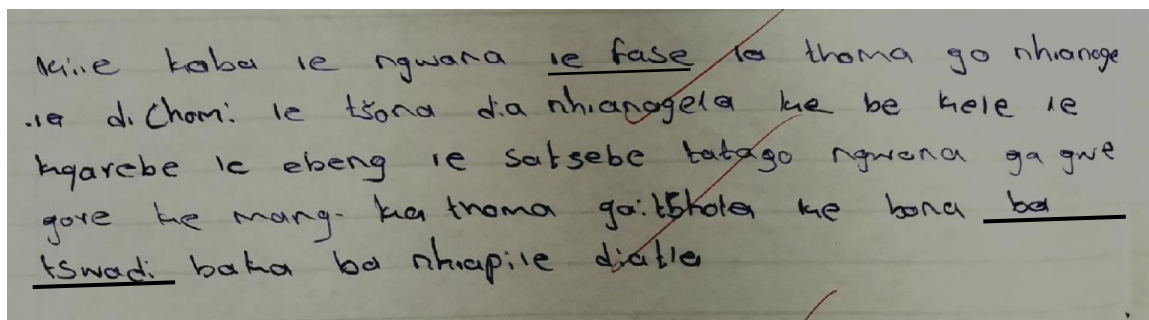 kile kaba le ngwana le fase la thoma go nhlanoge
la di Chomi le tšona dia nhlanogela ke be kele le
kgarebe le ebeng le satsebe tatago ngwana ga gwe
gore ke mang. ka thoma gaitšhola ke bona ba
tswadi baka ba nhlapile diatla